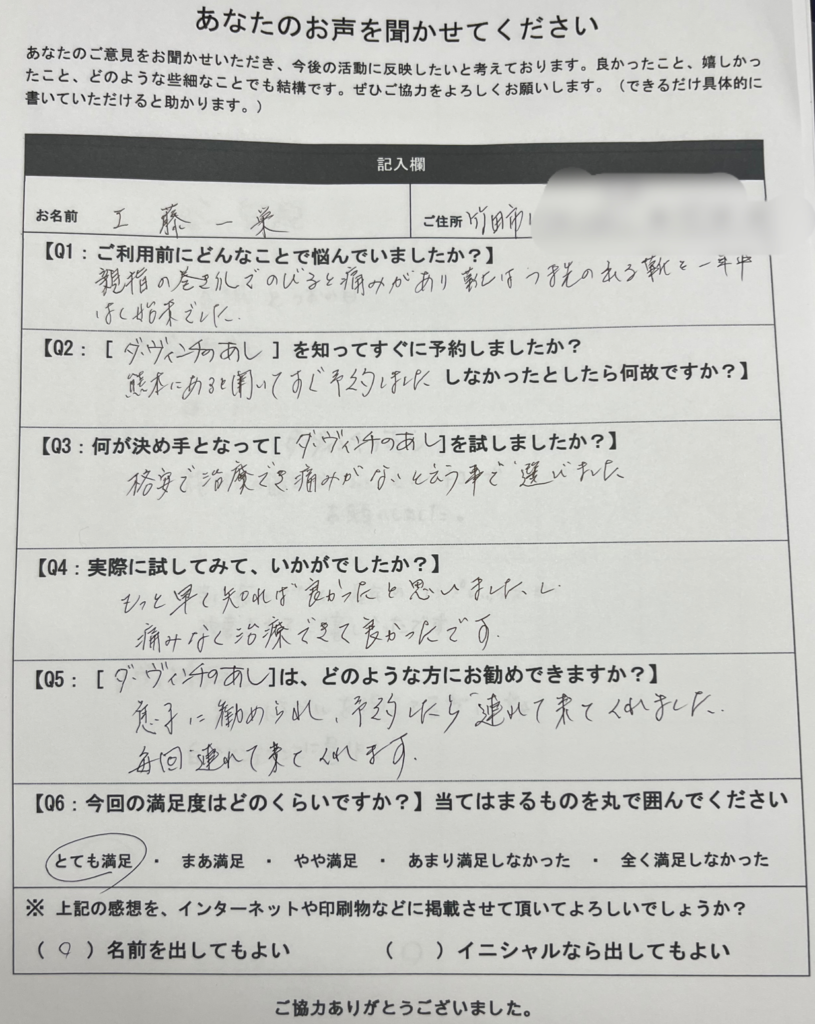 あなたのお声を聞かせてください
あなたのご意見をお聞かせいただき、今後の活動に反映したいと考えております。良かったこと、嬉しかっ
たこと、どのような些細なことでも結構です。ぜひご協力をよろしくお願いします。（できるだけ具体的に
書いていただけると助かります。）
記入欄
お名前 工藤一栄
ご住所 竹田市
【Q1：ご利用前にどんなことで悩んでいましたか？】
親指の巻き爪でのびると痛みがあり靴はつま先のある靴を一年中
はく始末でした.
【Q2：[ ダ・ヴィンチのあし ] を知ってすぐに予約しましたか？
熊本にあると聞いてすぐ予約しました しなかったとしたら何故ですか？】
【Q3：何が決め手となって[ ダ・ヴィンチのあし]を試しましたか？】
格安で治療でき痛みがないと云う事で選びました
【Q4：実際に試してみて、いかがでしたか？】
もっと早く知れば良かったと思いました、し
痛みなく治療できて良かったです.
【Q5：[ ダ・ヴィンチのあし]は、どのような方にお勧めできますか？】
息子に勧められ、予約したら連れて来てくれました.
毎回連れて来てくれます.
【Q6：今回の満足度はどのくらいですか？】当てはまるものを丸で囲んでください
とても満足 ・ まあ満足 ・ やや満足 ・ あまり満足しなかった ・ 全く満足しなかった
※ 上記の感想を、インターネットや印刷物などに掲載させて頂いてよろしいでしょうか？
（ ○ ）名前を出してもよい （ ）イニシャルなら出してもよい
ご協力ありがとうございました。